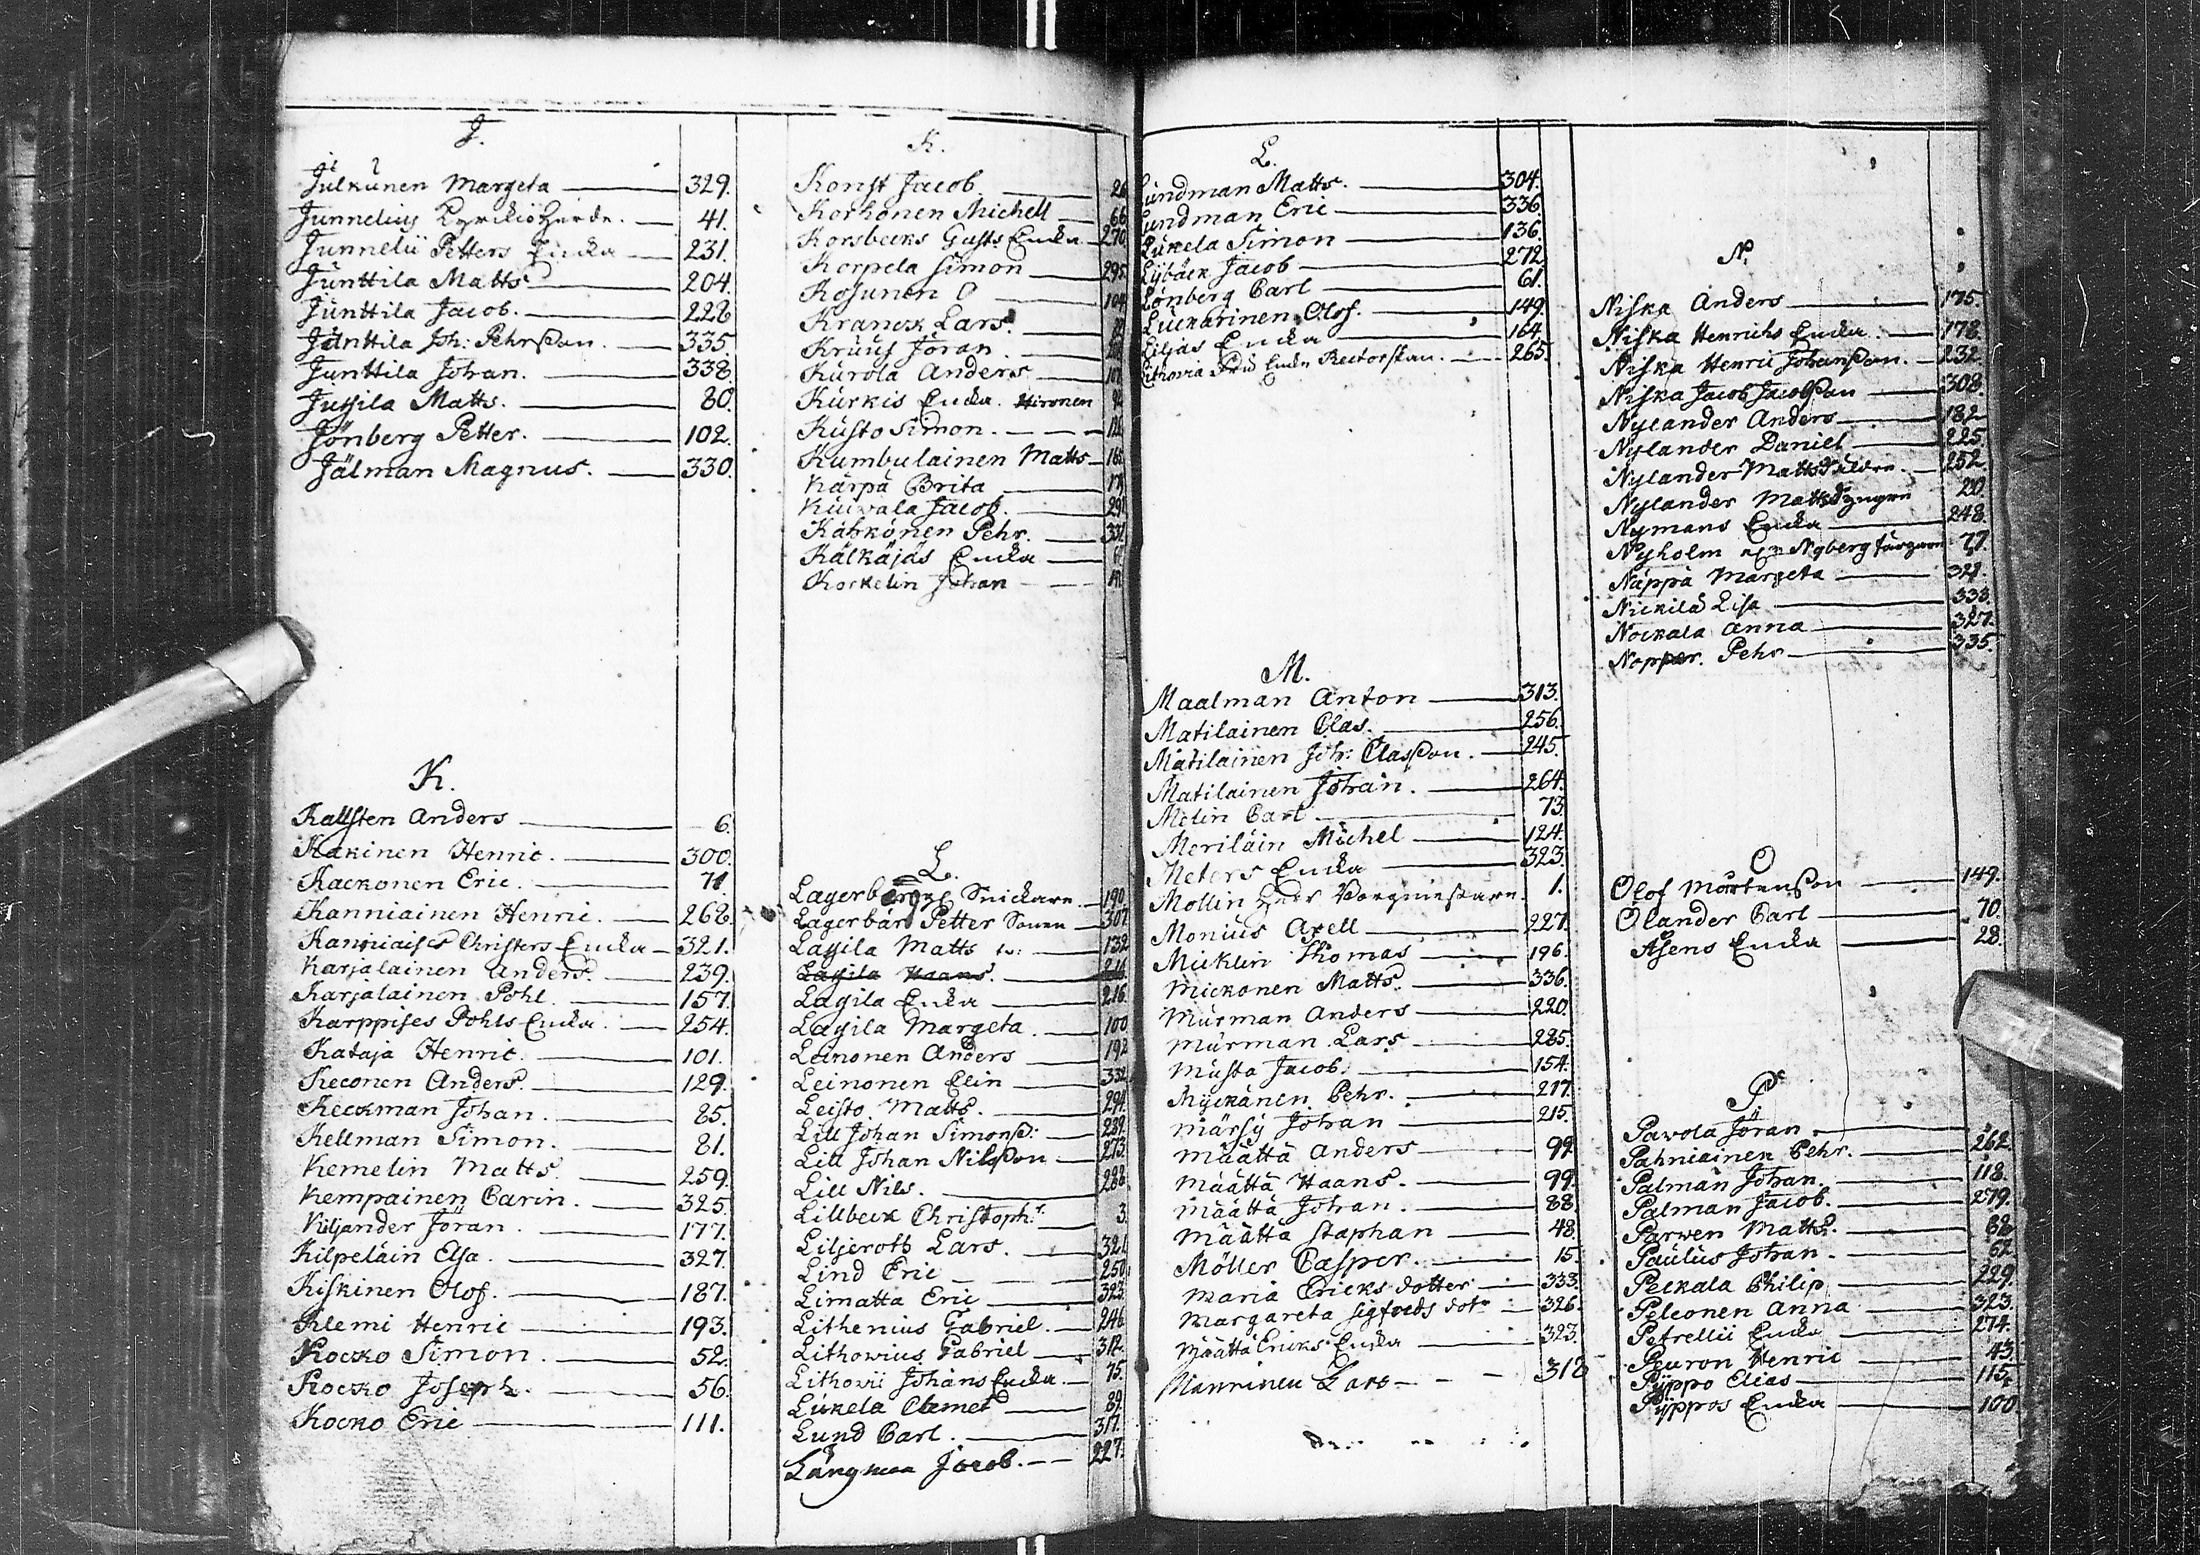 J.
Julkunen Margeta 329.
Junnelius 41.
Junnelii Petters Encka 231.
Junttila Matts 204.
Junttila Jacob. 228
Junttila Joh: Pehrsson. 335
Junttila Johan. 338.
Jussila Matts. 80.
Jönberg Petter. 102.
Jälman Magnus. 330.
K.
Kallsten Anders 6.
Kakinen Henric. 300.
Kackonen Eric. 71
Kanniainen Henric. 268.
Kanniaises Christers Encka 321.
Karjalainen Anders. 239.
Karjalainen Pohl. 157.
Karppises Pohls Encka. 254.
Kataja Henric. 101.
Keconen Anders. 129.
Keckman Johan. 85.
Kellman Simon. 81.
Kemelin Matts. 259.
Kempainen Carin. 325.
Kiljander Jöran. 177.
Kilpeläin Elsa. 327.
Kiskinen Olof. 187.
Klemi Henric 193.
Kocko Simon. 52.
Kocko Joseph. 56.
Kocko Eric 111.
K.
Konst Jacob. 26
Korhonen Michell 66
Korsbecks Gusts Encka 270
Korpela Simon 295
Kosunen O 104
Kranck Lars.
Kruus Jöran
Kurola Anders
Kurkis Encka. Hironen
Kusto Simon.
Kumbulainen Matts
Kärpä Brita
Kuivala Jacob. 291
Kähkönen Pehr. 331
Kälkäjäs Encka
Korkelin Johan
L.
Lagerberg Snickare 190
Lagerbär Petter 307
Lassila Matts 132
Lassila Haans.
Lassila Encka 216
Lassila Margeta. 100
Leinonen Anders 192
Leinonen Elin 332
Leisto Matts. 294
Lill Johan Simons: 289
Lill Johan Nilsson 273
Lill Nils. 288
Lillbeck Christoph:r 3.
Liljeroth Lars. 321
Lind Eric 250
Limatta Eric 323.
Lithenius Gabriel. 246
Lithovius Gabriel 312.
Lithovii Johans Encka 75.
Lukela Clemet 89
Lund Carl. 317.
Långman Jacob. 227.
L.
Lundman Matts. 304.
Lundman Eric 336.
Lukela Simon 136.
Lybäck Jacob 272
Lönberg Carl 61.
Luckarinen Olof. 149.
Liljas Encka 164.
265.
M.
Maalman Anton 313.
Matilainen Clas. 256.
Matilainen Joh: Classon. 245.
Matilainen Johan. 264.
Melin Carl 73.
Meriläin Michel 124.
Meters Encka 323.
Mollin 1.
Monius Axell 227.
Micklin Thomas 196.
Mickonen Matts. 336.
Murman Anders 220.
Murman Lars 285.
Musta Jacob. 154.
Myckänen Pehr. 217.
Märsy Johan 215.
Määttä Anders 99.
Määttä Haans. 99.
Määttä Johan. 88.
Määttä Staphan 48.
Möller Casper. 15.
Maria Ericks dotter 333.
Margareta Sigfreds dot: 326.
Määttä Ericks Encka 323.
Manninen Lars 318
N.
Niska Anders 175.
Niska Henrichs Encka 178.
Niska Henric Johansson. 232.
Niska Jacob Jacobsson 308.
Nylander Anders 182
Nylander Daniel 225.
Nylander Matts äldre 252.
Nylander Matts yngre 20
Nymans Encka 248.
Nyholm Nyberg färgare 77.
Näppä Margeta 321.
Nickilä Lisa 333.
Nockala Anna 327.
Nopper. Pehr 335.
O
Olof Mårtensson 149.
Olander Carl 70.
Åsens Encka 28.
P.
Pavola Jöran.
Pahniainen Pehr. 262.
Palman Johan. 118.
Palman Jacob. 279.
Parwen Matts. 82
Paulus Johan. 62.
Peckala Philip 229.
Peleonen Anna 323.
Petrellii Encka 274.
Peuron Henric 43.
Pyppo Elias 115.
Pyppos Encka 100